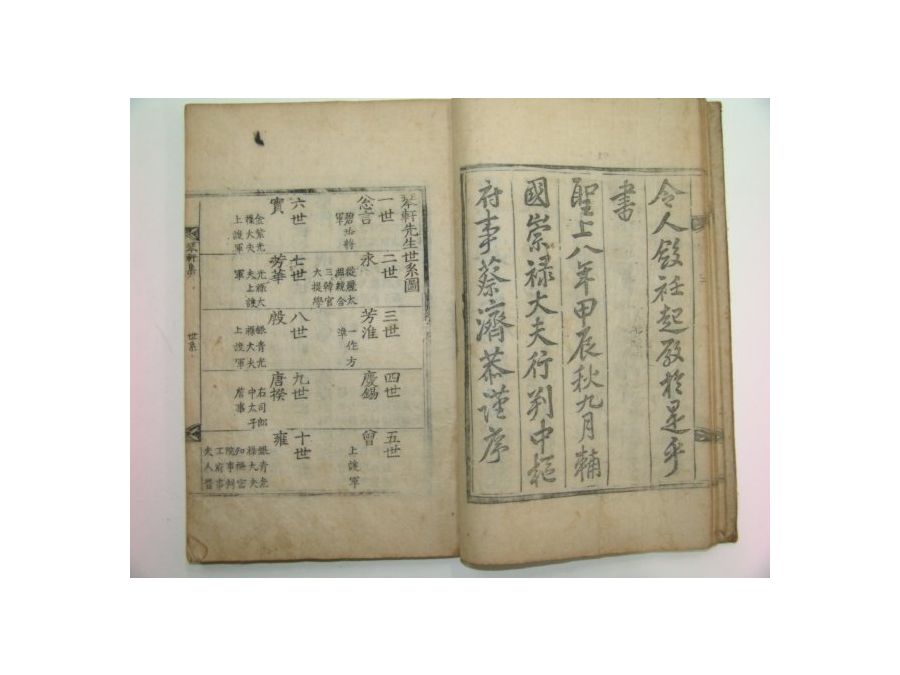 令人敘衽起敬於是乎
書
聖上八年甲辰秋九月輔
國崇祿大夫行判中樞
府事蔡濟恭謹序
琴軒先生世系圖
一世
忿言
碧珍將
軍
二世
永
從麗太
祖統合
三韓官
大提學
三世
芳淮
一作方
淮
四世
慶錫
五世
曾
上護軍
六世
實
金紫光
祿大夫
上護軍
七世
芳華
光祿大
夫上護
軍
八世
殷
銀青光
祿大夫
上護軍
九世
唐揆
右司郎
中太子
詹事
十世
雍
銀青光
祿大夫
知樞密
院事判
工府事
夫人晉
琴軒集
世系